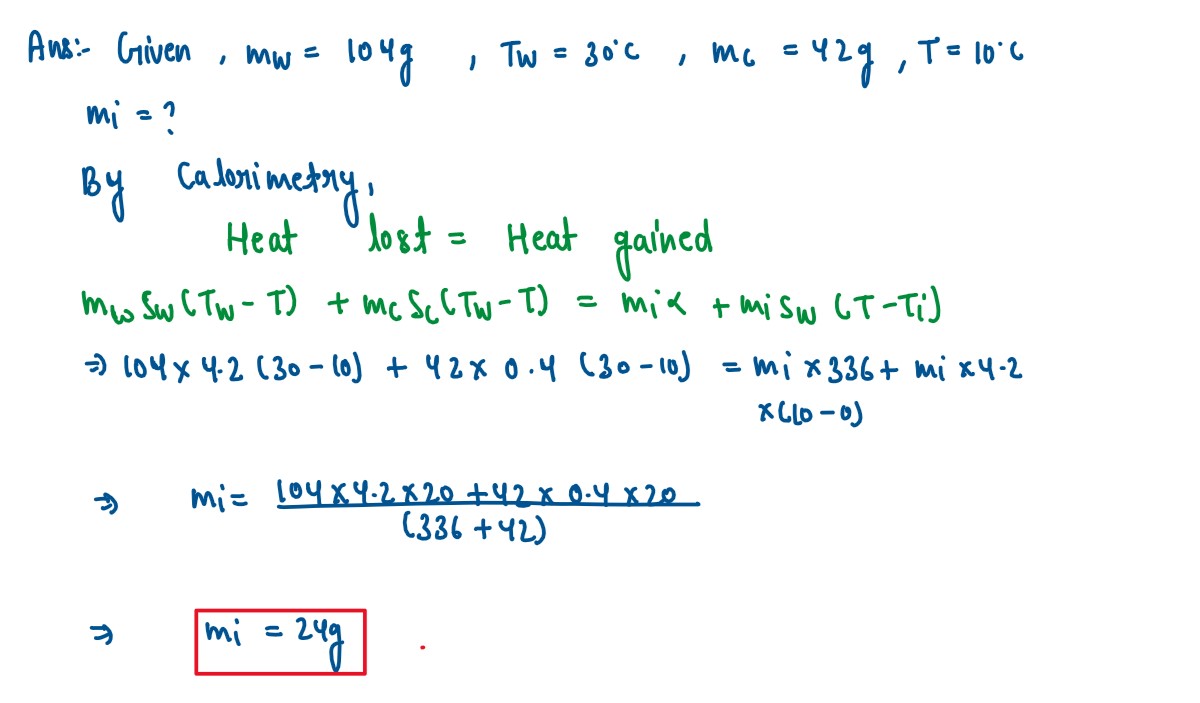 Ans:- Given , mw = 104g , Tw = 30°C , mc = 42g , T = 10°C
mi = ?
By Calorimetry,
Heat lost = Heat gained
mw Sw (Tw - T) + mc Sc (Tw - T) = mi α + mi Sw (T - Ti)
⇒ 104 × 4.2 (30 - 10) + 42 × 0.4 (30 - 10) = mi × 336 + mi × 4.2
× (10 - 0)
⇒ mi = 104 × 4.2 × 20 + 42 × 0.4 × 20
(336 + 42)
⇒ mi = 24g .